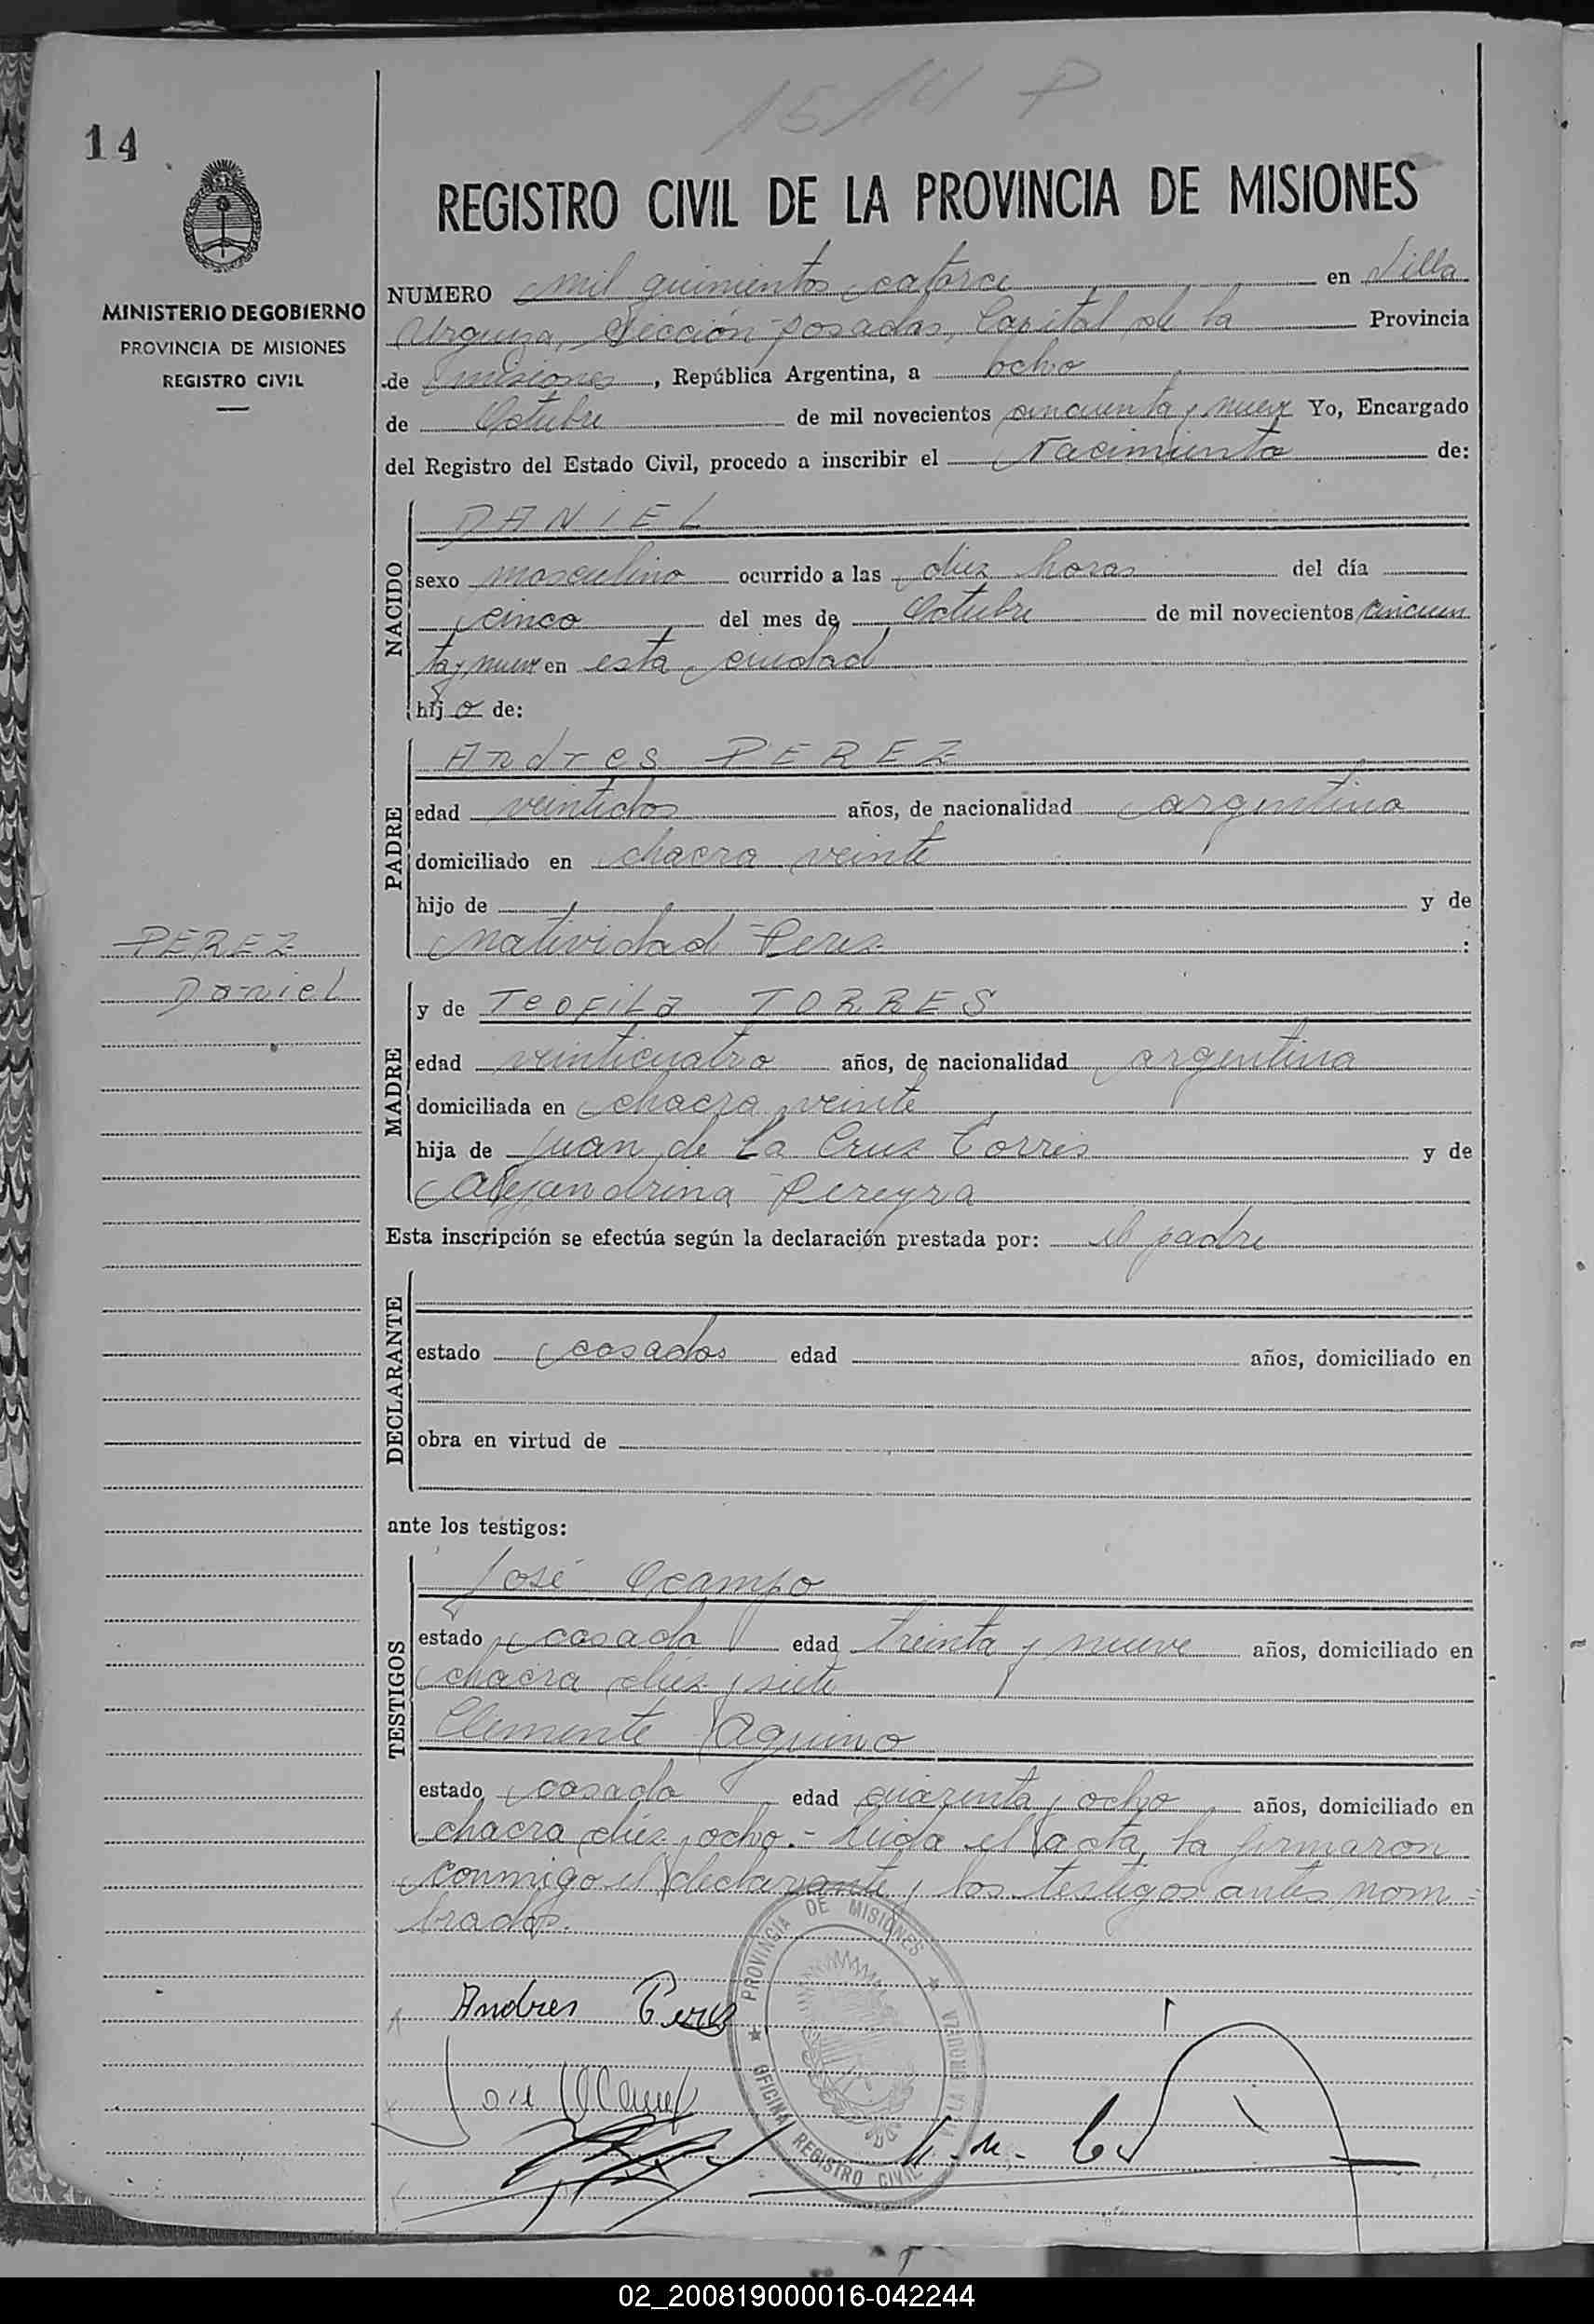 15/14 P
14
REGISTRO CIVIL DE LA PROVINCIA DE MISIONES
MINISTERIO DE GOBIERNO
PROVINCIA DE MISIONES
REGISTRO CIVIL
NUMERO mil quinientos catorce en Villa
Urquiza, Sección posadas, Capital de la Provincia
de misiones, República Argentina, a ocho
de Octubre de mil novecientos cincuenta y nueve Yo, Encargado
del Registro del Estado Civil, procedo a inscribir el Nacimiento de:
NACIDO
DANIEL
sexo masculino ocurrido a las diez horas del día
cinco del mes de Octubre de mil novecientos cincuen
ta y nueve en esta ciudad
hijo de:
PADRE
Andres PEREZ
edad veintidos años, de nacionalidad argentina
domiciliado en chacra veinte
hijo de y de
natividad Perez
PEREZ
Daniel
MADRE
y de Teofila TORRES
edad veinticuatro años, de nacionalidad argentina
domiciliada en chacra veinte
hija de Juan de La Cruz Torres y de
Alejandrina Pereyra
Esta inscripción se efectúa según la declaración prestada por: el padre
DECLARANTE
estado casados edad años, domiciliado en
obra en virtud de
ante los testigos:
TESTIGOS
José Ocampo
estado casado edad treinta y nueve años, domiciliado en
chacra diez y siete
Clemente Aquino
estado casado edad cuarenta y ocho años, domiciliado en
chacra diez y ocho.- Leida el acta, la firmaron
conmigo el declarante y los testigos antes nom=
brados.
PROVINCIA DE MISIONES
OFICINA REGISTRO CIVIL
Andres Perez
José Ocampo
02_200819000016-042244